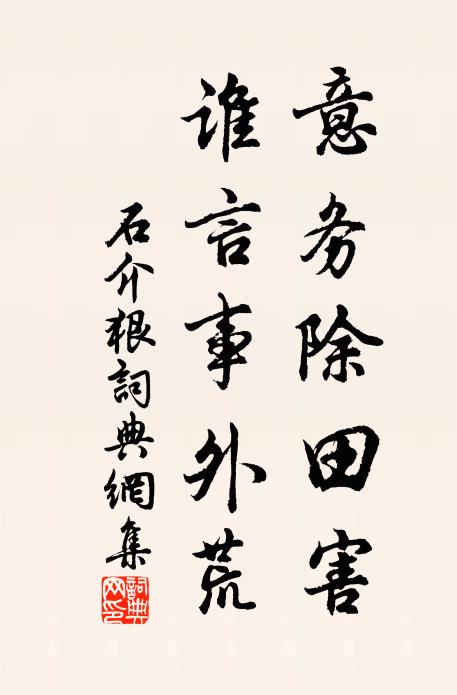 意务除田害
谁言事外荒
石介狠詞典網集
詞典网印